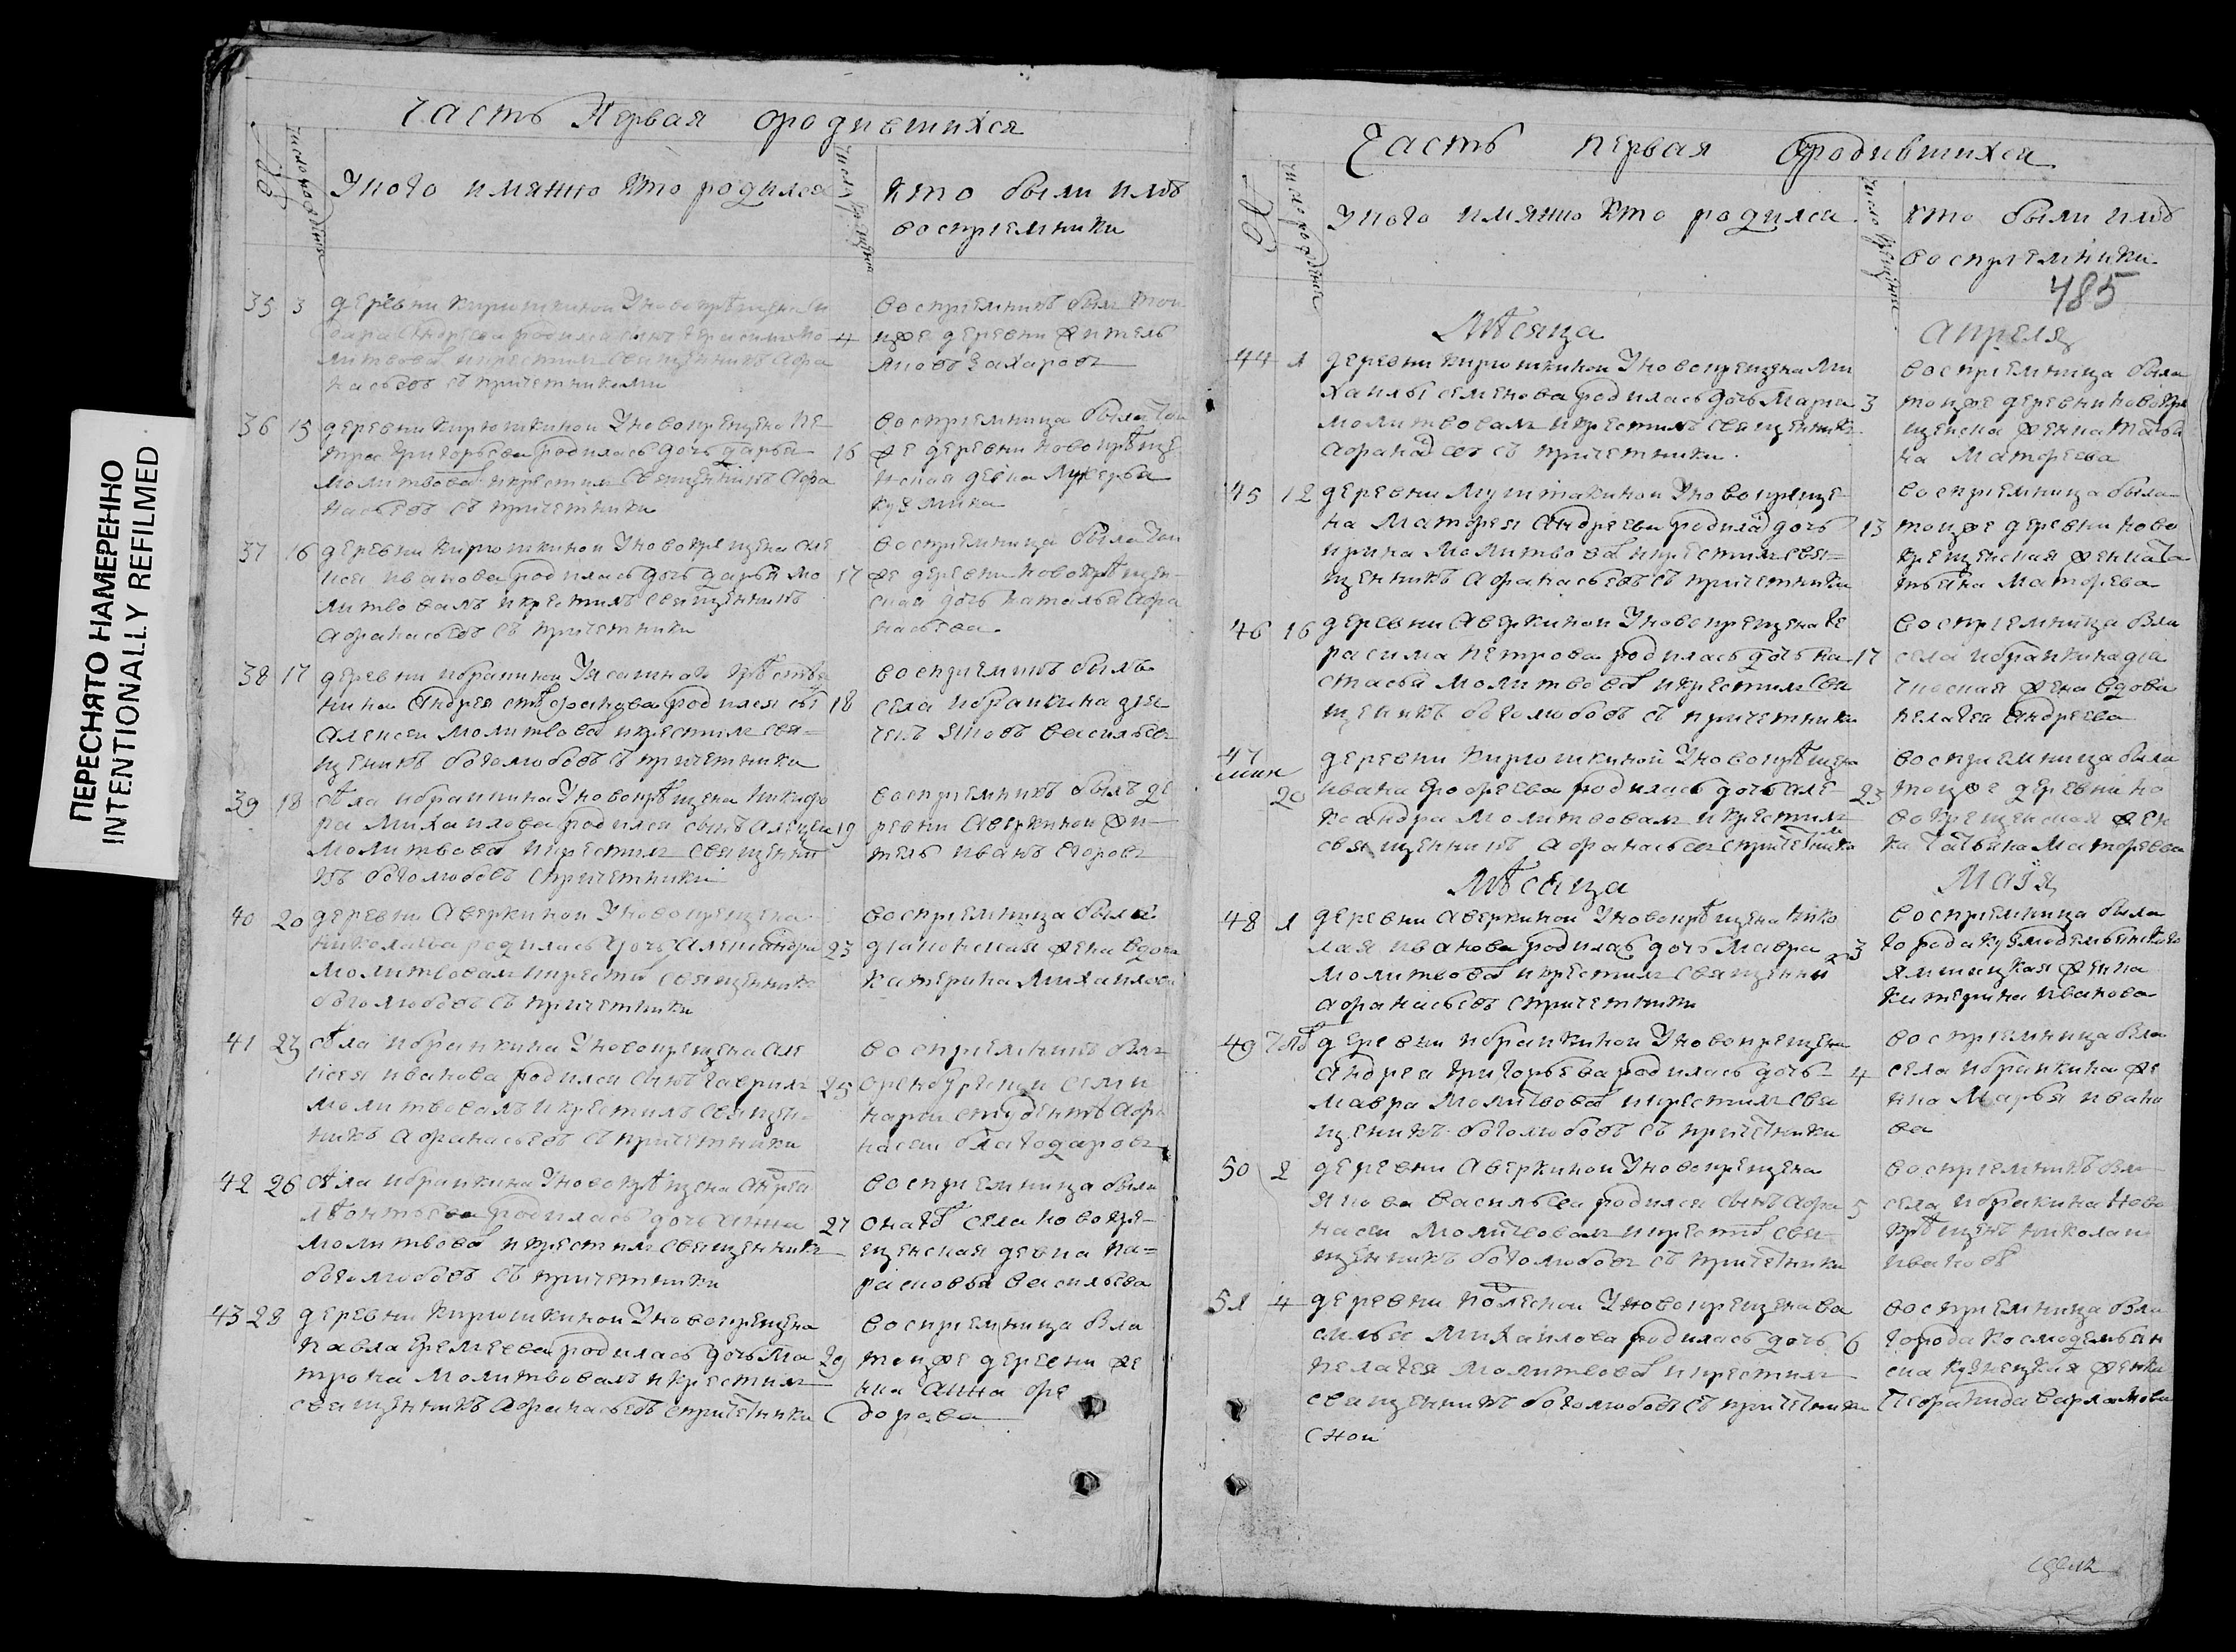 ПЕРЕСНЯТО НАМЕРЕННО
INTENTIONALLY REFILMED
часть Первая ородившихся
число рождения
У кого имянно кто родился
число крещения
кто были имъ
воспрiемники
35 3 деревни Кирюшкиной У новокрѣщена
родился сынъ Герасимъ мо
литвова и крестилъ священникъ Афа
насьевъ съ причетниками
4
воспрiемникъ былъ тои
же деревни житель
Яковъ Захаровъ
36 15 деревни Кирюшкиной У новокрещена Пе
тра Григорьева родилась дочь Дарья
молитвовал и крестил священникъ Афа
насьевъ съ причетники
16
воспрiемница была тои
же деревни новокрѣще
нская девка Лукерья
Кузмина
37 16 деревни Кирюшкиной У новокрещена Але
ксея Иванова родилась дочь Дарья мо
литвовалъ и крестилъ священникъ
Афанасьевъ съ причетники
17
воспрiемница была тои
же деревни новокрѣщен
ская дочь Наталья Афа
насьева
38 17 деревни Ибрайкиной
Андрея Стефанова родился сы
Алексеи молитвовал и крестил свя=
щеникъ боголюбовъ съ причетники
18
воспрiемникъ былъ
села Ибрайкина дья
чекъ Яковъ Васильевъ
39 18 сѣла Ибрайкина У новокрѣщена Никифо
ра Михаилова родился сынъ Алексеи
молитвовал и крестил священни
къ боголюбовъ с причетники
19
воспрiемникъ былъ де
ревни Аверкиной жи
тель Иванъ Егоровъ
40 20 деревни Аверкиной У новокрещена
Николаева родилась дочь Александра
молитвовал и крестил священникъ
боголюбовъ съ причетники
23
воспрiемница была
дiаконская жена вдова
Катерина Михаилова
41 23 сѣла Ибрайкина У новокрещена Але
ксея Иванова родился сынъ Гаврилъ
молитвовалъ и крестилъ священ
никъ Афанасьевъ съ причетники
25
воспрiемникъ был
оренбургскои семи
нарiи студентъ Афа
насеи благодаровъ
42 26 сѣла Ибрайкина У новокрѣщена Андрея
Лѣонтьева родилась дочь Анна
молитвовал и крестил священникъ
боголюбовъ съ причетники
27
воспрiемница была
онагѡ села новокре
щенская девка Па=
расковья Васильева
43 28 деревни Кирюшкиной У новокрещена
Павла Еремеева родилась дочь Ма
трона молитвовалъ и крестил
священникъ Афанасьевъ с причетники
29
воспрiемница была
тойже деревни же
нка Анна Фе
дорова
Часть первая ородившихся
число рождения
У кого имянно кто родился
число крещения
кто были имъ
воспрiемники
485
Мѣсяца Апреля
44 1 деревни Кирюшкиной У новокрещена Ми
хаилы Семенова родилась дочь Марья
молитвовалъ и крестилъ священникъ
Афанасьев съ причетники
3
воспрiемница была
тоиже деревни новокре
щенска женка Татья
на Матфеева
45 12 деревни Мушпакиной У новокреще
на Матфея Андреева родилас дочь
Ирина молитвовал и крестил свя=
щенникъ Афанасьевъ съ причетники
13
воспрiемница была
тоиже деревни ново
крещенская женка Та
тьяна Матфева
46 16 деревни Аверкиной У новокрещена Ге
расима Петрова родилась дочь На
стасья молитвовал и крестил свя
щеникъ боголюбовъ съ причетники
17
воспрiемница была
села Ибрайкина дья
ческая жена вдова
Пелагея Андреева
47
20 деревни Кирюшкиной У новокрѣщена
Ивана Ерофеева родилась дочь Але
ксандра молитвовал и крестил
священникъ Афанасьевъ с причетники
23
воспрiемница была
тоиже деревни но
вокрещенская жен
ка Татьяна Матфеева
Мѣсяца Маiя
48 1 деревни Аверкиной У новокрѣщена Нико
лая Иванова родилас дочь Мавра
молитвовал и крестил священни
Афанасьевъ с причетники
3
воспрiемница была
города Кузмодемьянскаго
Ямщицкая женка
Катерина Иванова
49 тогѡ деревни Ибрайкиной У новокрещена
Андрея Григорьева родилась дочь
Мавра молитвовал и крестил свя
щеникъ боголюбовъ съ причетники
4
воспрiемница была
села Ибрайкина же
нка Марья Ивано
ва
50 2 деревни Аверкиной У новокрещена
Якова Васильева родился сынъ Афа
насеи молитвовал и крестил свя=
щенникъ боголюбовъ съ причетники
5
воспрiемникъ былъ
села Ибрайкина Ново
крѣщенъ Николаи
Ивановъ
51 4 деревни Полескои У новокрещена Ва
силья Михаилова родилась дочь
Пелагея молитвовал и крестил
священникъ боголюбовъ съ причетники
6
воспрiемница была
города Космодемьян
ска Кузнецкая женка
Феофанида Варламова